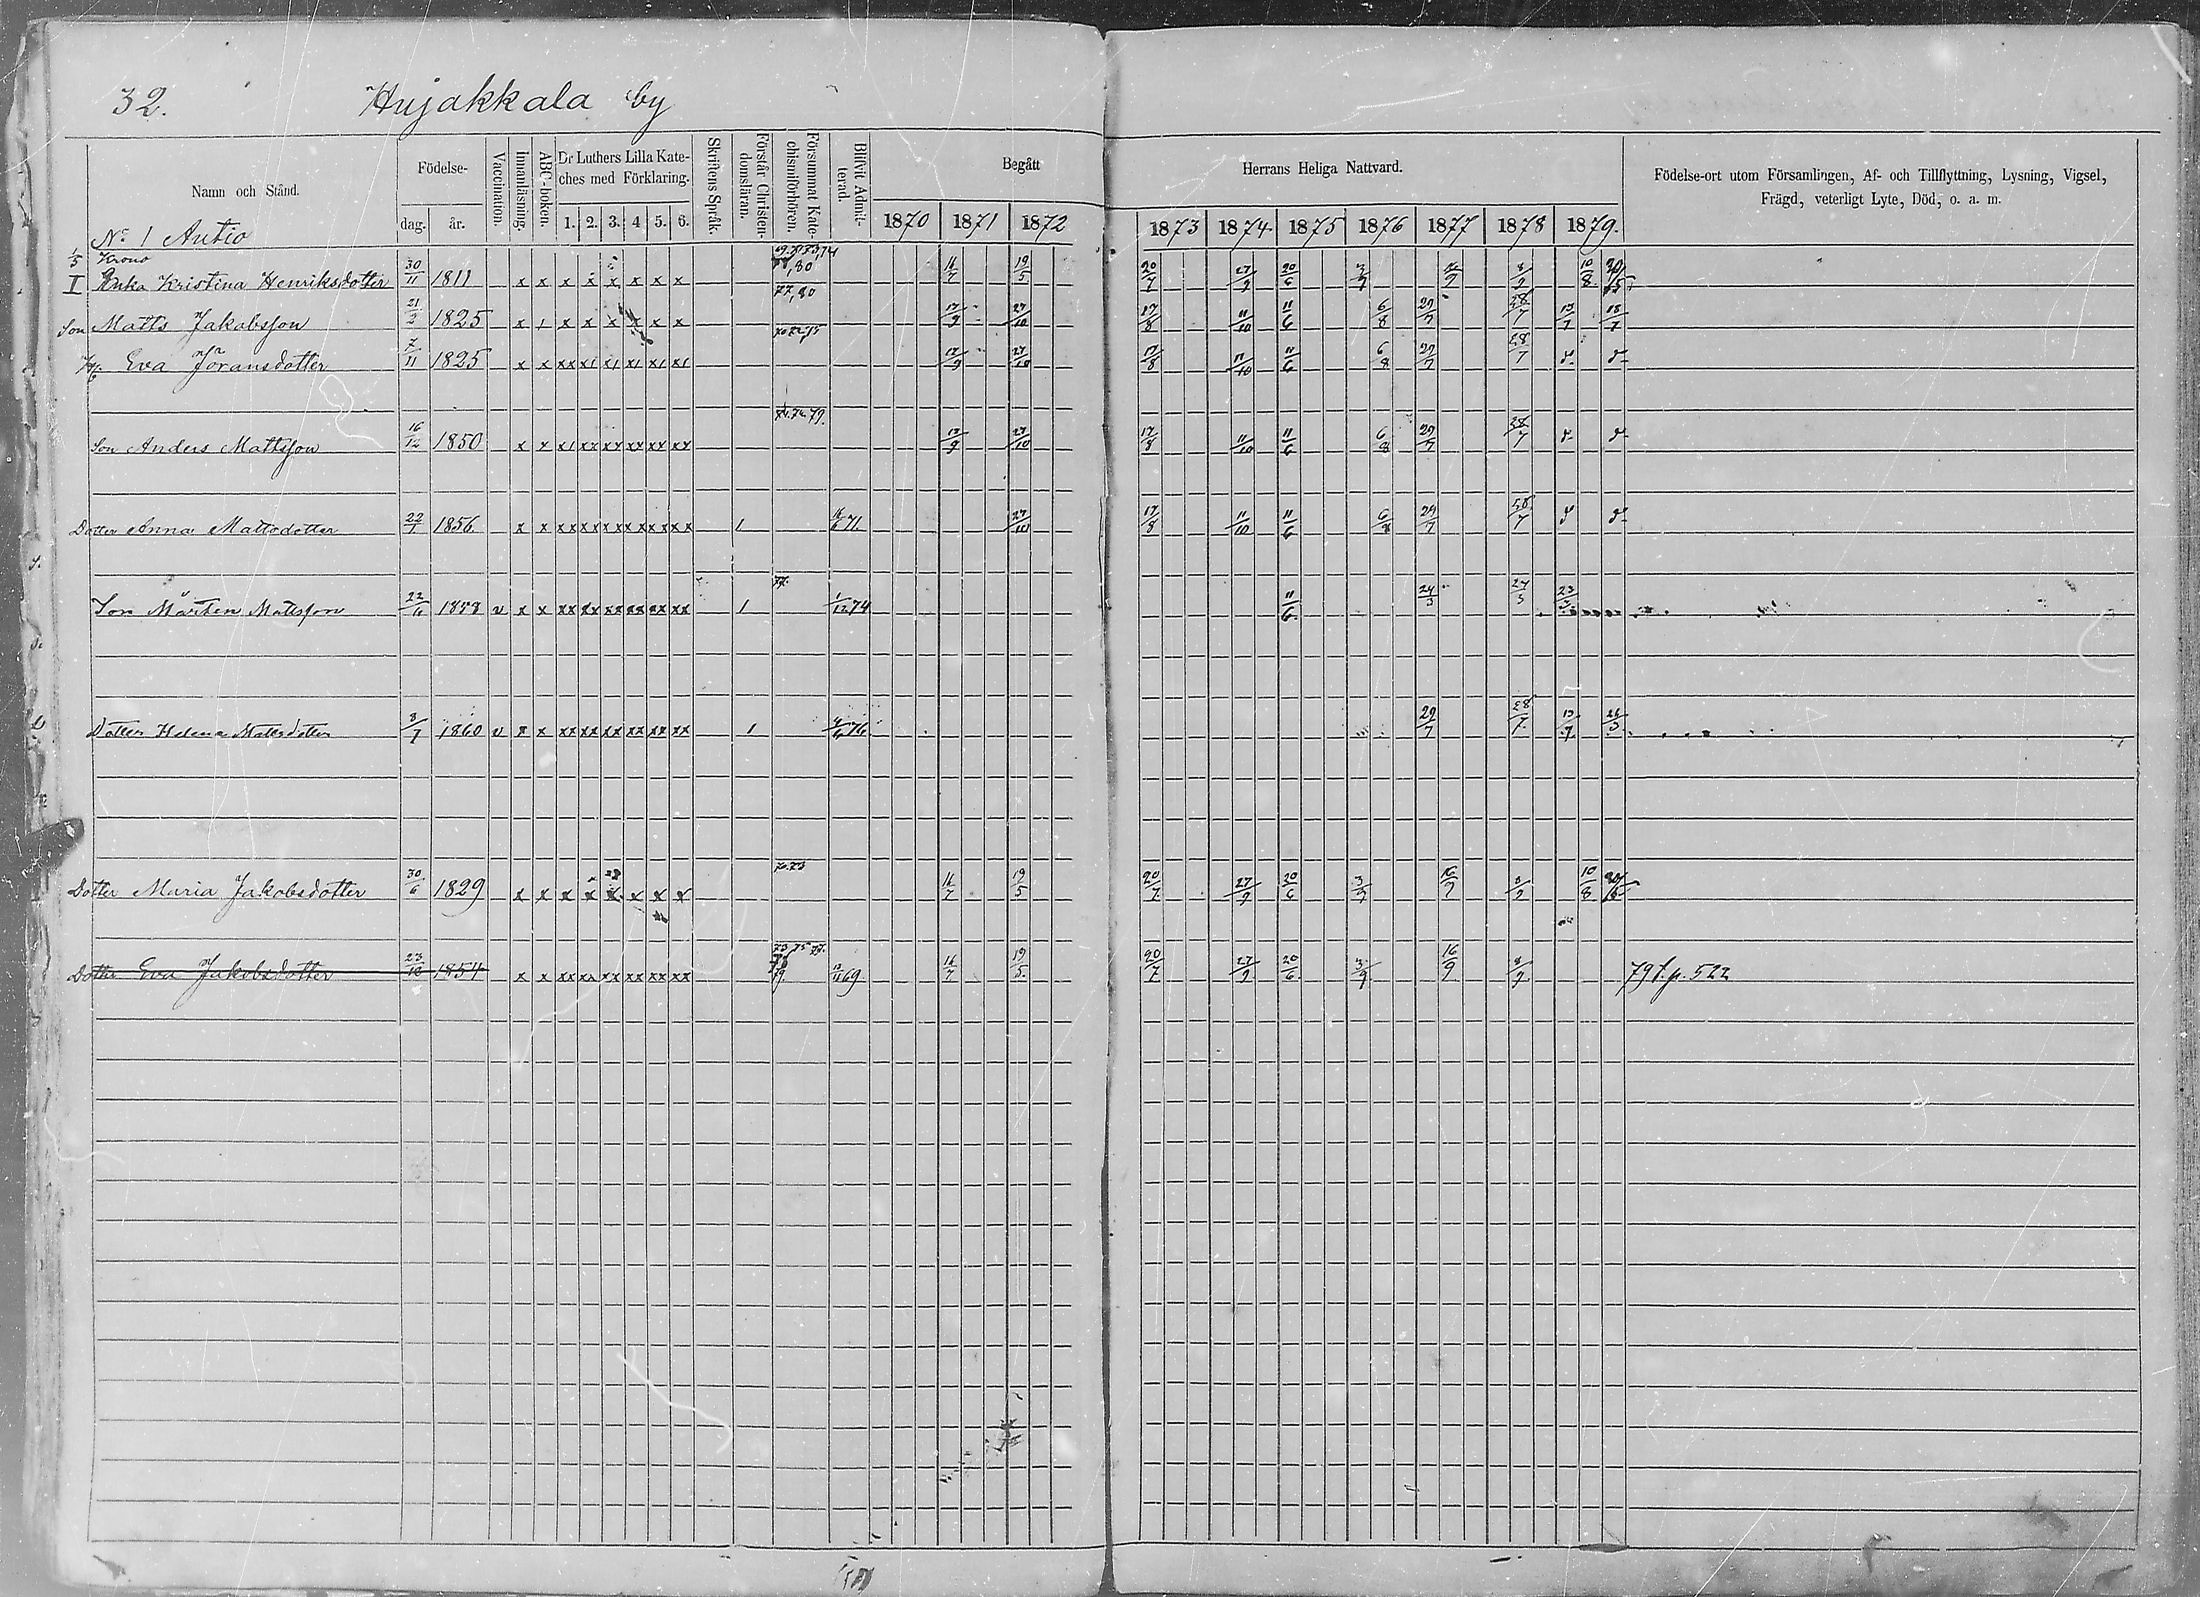 32. Hujakkala by
Namn och Stånd.
Födelse-
dag. år.
Vaccination.
Innanläsning.
ABC-boken.
Dr Luthers Lilla Kate-
ches med Förklaring.
1. 2. 3. 4 5. 6.
Skriftens Språk.
Förstår Christen-
domsläran.
Försummat Kate-
chismiförhören.
Blifvit Admit-
terad.
Begått
1870 1871 1872
Herrans Heliga Nattvard.
1873 1874 1875 1876 1877 1878 1879.
Födelse-ort utom Församlingen, Af- och Tillflyttning, Lysning, Vigsel,
Frägd, veterligt Lyte, Död, o. a. m.
No 1 Autio
Krono
I Enka Kristina Henriksdotter 30/11 1811 x x x x x x x x 16/7 19/5 20/7 27/9 20/6 3/9 16/9 8/9 10/8
Son Matts Jakobsson 21/2 1825 x x x x x x 17/9 27/10 17/8 11/10 11/6 6/8 29/7 28/7 13/7 18/7
Eva Jöransdotter 7/11 1825 x x xx 17/9 27/10 17/8 11/10 11/6 6/8 29/7 28/7
Son Anders Mattsson 16/12 1850 x x xx xx xx xx xx 17/9 27/10 17/8 11/10 11/6 6/8 29/7 28/7
Dotter Anna Mattsdotter 22/1 1856 x x xx xx xx xx xx xx 1 71 27/10 17/8 11/10 11/6 6/8 29/7 28/7
Son Mårten Mattsson 1858 v x x xx xx xx xx xx xx 1 74 11/6 24/3
Dotter Helena Mattsdotter 8/7 1860 v x x xx xx xx xx xx xx 1 76 29/7 28/7 13/7
Dotter Maria Jakobsdotter 30/6 1829 x x x x x x x x 16/7 19/5 20/7 27/9 20/6 3/9 16/9 8/9 10/8
Dotter Eva Jakobsdotter 1854 x x xx xx xx xx xx xx 69 16/7 19/5 20/7 27/9 20/6 3/9 16/9 8/9 79 f. p. 522